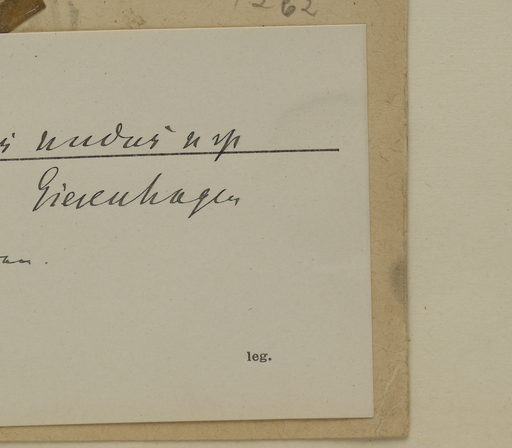 1262
nudus n sp
Giesenhagen
leg.